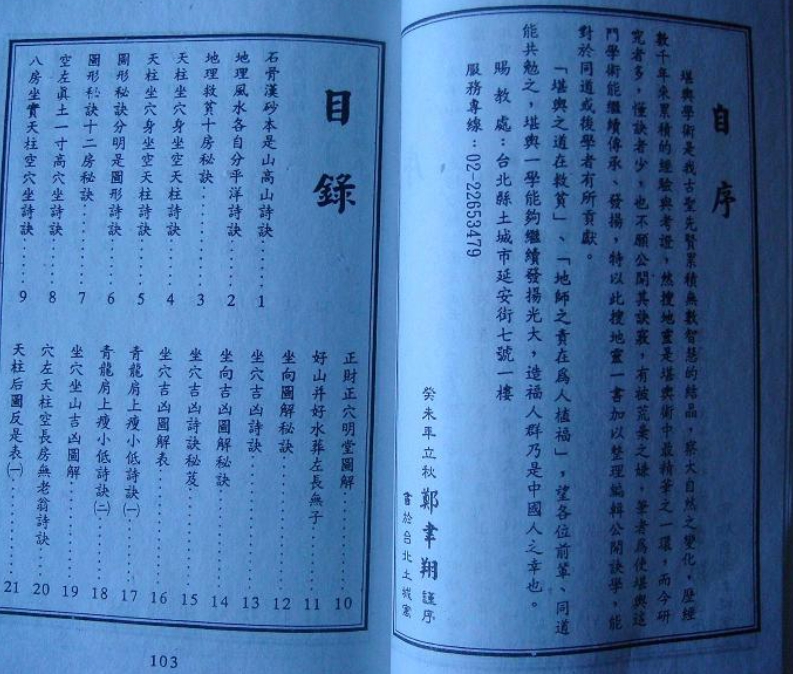 自序
堪輿學術是我古聖先賢累積無數智慧的結晶，察大自然之變化，歷經
數千年來累積的經驗與考證，然搜地靈是堪輿術中最精華之一環，而今研
究者多，懂訣者少，也不願公開其訣竅，有被荒棄之嫌，筆者為使堪輿這
門學術能繼續傳承、發揚，特以此搜地靈一書加以整理編輯公開訣學，能
對於同道或後學者有所貢獻。
「堪輿之道在救貧」、「地師之責在爲人植福」，望各位前輩、同道
能共勉之，堪輿一學能夠繼續發揚光大，造福人群乃是中國人之幸也。
賜教處：台北縣土城市延安街七號一樓
服務專線：02-22653479
癸未年立秋 鄭聿翔 謹序
書於台北土城寓
目錄
石骨漢砂本是山高山詩訣………1
地理風水各自分平洋詩訣………2
地理救貧十房秘訣………3
天柱坐穴身坐空天柱詩訣………4
天柱坐穴身坐空天柱詩訣………5
圖形秘訣分明是圖形詩訣………6
圖形秘訣十二房秘訣………7
空左眞土一寸高穴坐詩訣………8
八房坐實天柱空穴坐詩訣………9
正財正穴明堂圖解………10
好山并好水葬左長無子………11
坐向圖解秘訣………12
坐穴吉凶詩訣………13
坐向吉凶圖解秘訣………14
坐穴吉凶詩訣秘芨………15
坐穴吉凶圖解表………16
青龍肩上瘦小低詩訣㈠………17
青龍肩上瘦小低詩訣㈡………18
坐穴坐山吉凶圖解………19
穴左天柱空長房無老翁詩訣………20
天柱后圖反是表㈠………21
103